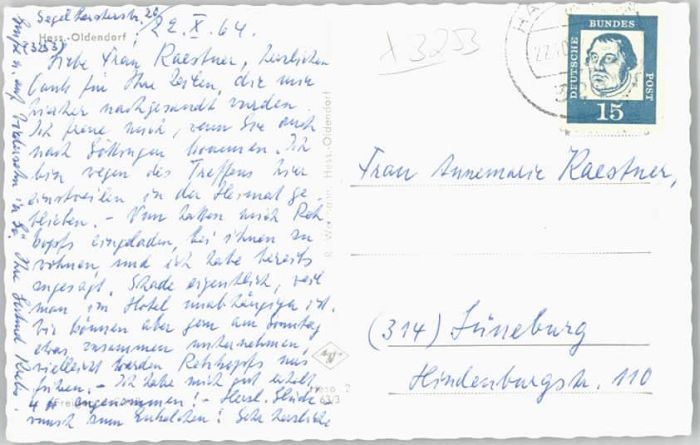 22. X. 64.
Hess.-Oldendorf
(3253)
Liebe Frau Kaestner, herzlichen
Dank für Ihre Zeilen, die mir
hierher nachgesandt wurden.
Ich freue mich, wenn Sie auch
nach Göttingen kommen. Ich
bin wegen des Treffens hier
einstweilen in der Heimat ge
blieben. - Nun hatten mich Reh
kopfs eingeladen, bei ihnen zu
wohnen, und ich habe bereits
zugesagt. Schade eigentlich, weil
man im Hotel unabhängiger ist.
Wir können aber gern am Sonntag
etwas zusammen unternehmen,
vielleicht werden Rehkopfs uns
führen. - Ich habe mich gut erholt,
4 ℔ zugenommen! - Herzl. Glück
wunsch zum Enkelchen! Sehr herzliche
Grüße u. auf Wiedersehn in Gö. Ihre
λ 3253
DEUTSCHE
BUNDES
POST
15
Frau Annemarie Kaestner,
(314) Lüneburg
Hindenburgstr. 110
Hess.-Oldendorf
63/3